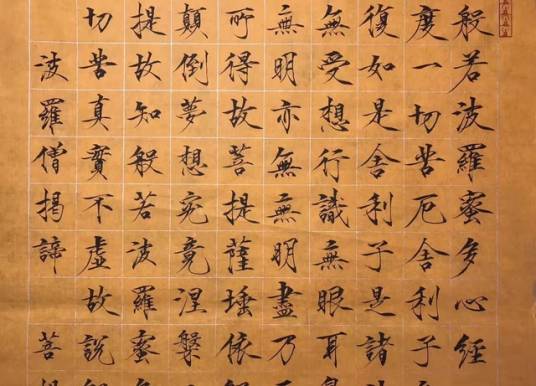 般若波羅蜜多心經
度一切苦厄舍利子
復如是舍利子是諸
無受想行識無眼耳
無明亦無無明盡乃
所得故菩提薩埵依
顛倒夢想究竟涅槃
提故知般若波羅蜜
切苦真實不虛故說
波羅僧揭諦 菩